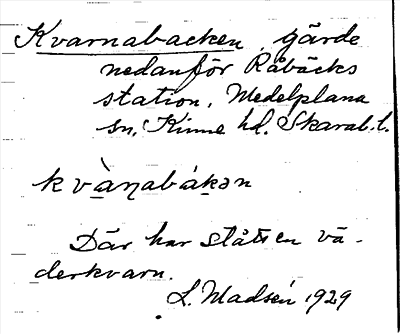 Kvarnabacken, gärde
nedanför Råbäcks
station, Medelplana
sn, Kinne hd. Skarab. l.
kvàṇabákən
Där har ståt en vä-
derkvarn.
L. Madsén 1929